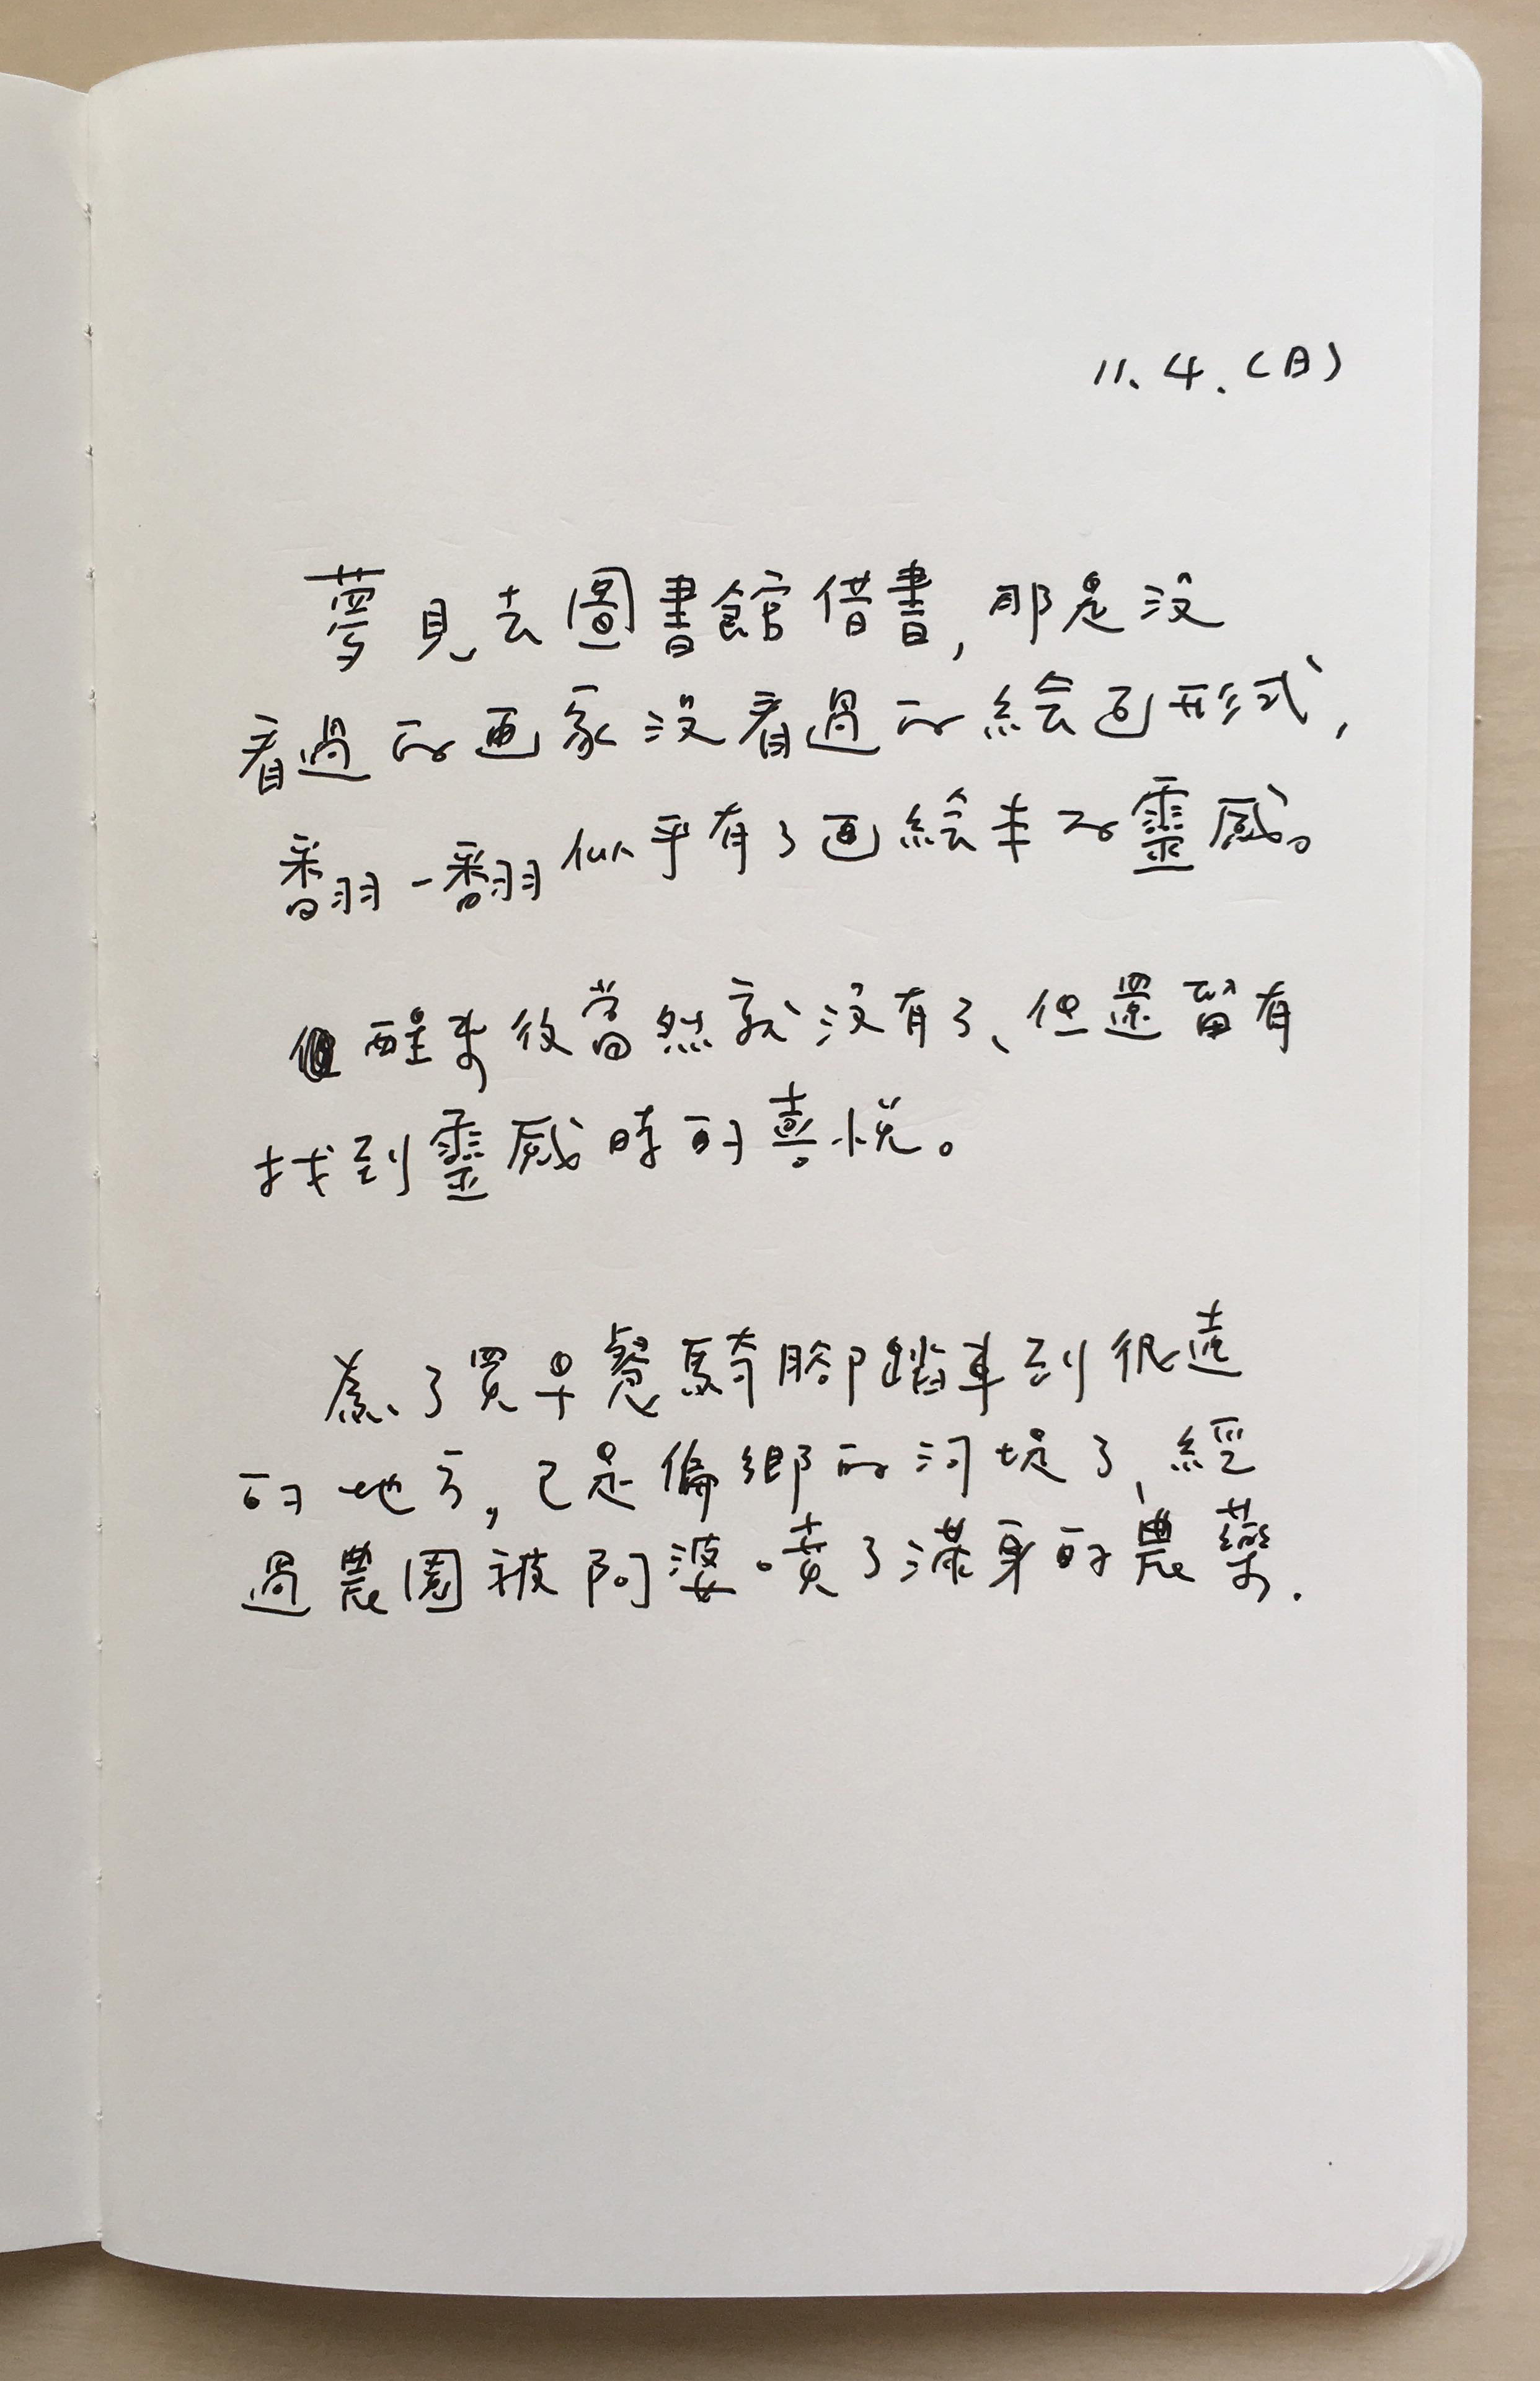 11.4.(日)
夢見去圖書館借書,那是沒
看過的画家沒看過的絵画形式,
翻一翻似乎有了画絵本的靈感。
醒來後當然就沒有了、但還留有
找到靈感時的喜悅。
為了買早餐騎腳踏車到很遠
的地方,已是偏鄉的河堤了,經
過農園被阿婆噴了滿身的農藥.